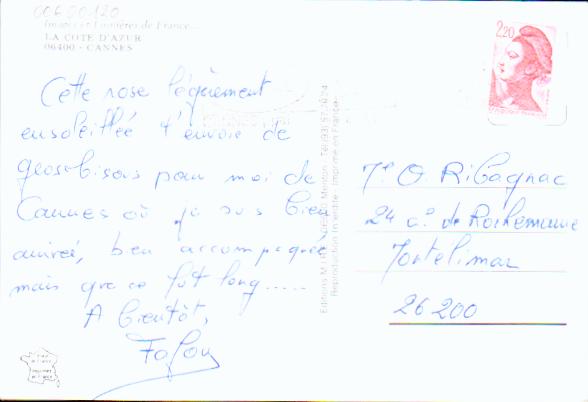 00650120
Images et Lumières de France...
LA COTE D'AZUR
06400 - CANNES
2,20
Cette rose légèrement
ensoleillée t'envoie de
gros bisous pour moi de
Cannes où je suis bien
arrivé, bien accompagné
mais que ce fût long.....
A bientôt,
Editions Menton
Reproduction interdite - Imprimé en France
O Ribagnac
24 de Rochemaure
Montelimar
26 200